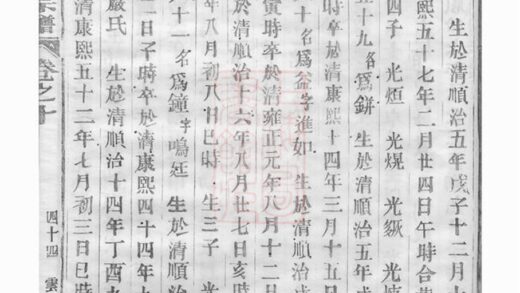 生於清順治五年戊子十二月十
熙五十七年二月廿四日午時合葬
四子 光烜 光熀 光
五十九名爲鉼 生於清順治五年戊
於清康熙四十四年三月十五日
十名爲益字進如 生於清順治
寅時卒於清雍正元年八月十二日
於清順治十六年八月廿七日亥時
年八月初八日巳時 生三子 光
十一名爲鐘字鳴廷 生於清順
二日子時卒於清康熙四十四年十
嚴氏 生於清順治十四年丁酉九
清康熙五十二年七月初三日巳時
宗譜 卷之十 四十四